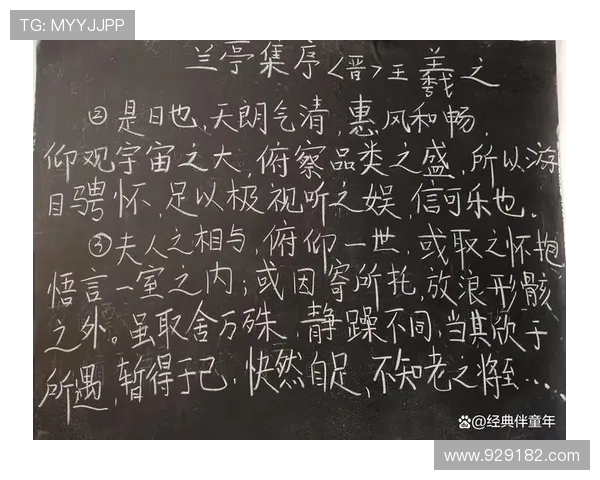 TG: MYYJJPP
兰亭集序<晋>王羲之
②是日也,天朗气清,惠风和畅,
仰观宇宙之大,俯察品类之盛,所以游
目骋怀,足以极视听之娱,信可乐也.
③夫人之相与,俯仰一世,或取之怀抱
悟言一室之内;或因寄所托,放浪形骸
之外。虽取舍万殊,静躁不同,当其欣于
所遇,暂得于己,快然自足,不知老之将至....
@经典伴童年
www.929182.com